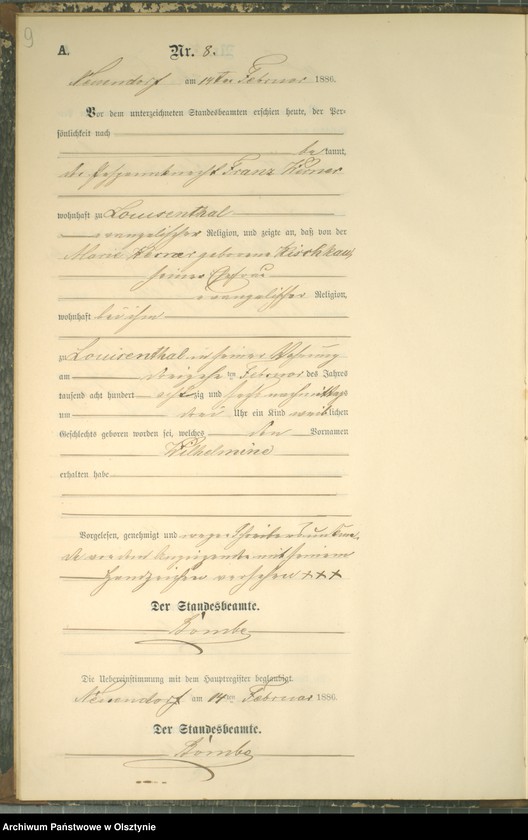 9
A.
Nr. 8.
Neuendorf am 14ten Februar 1886.
Vor dem unterzeichneten Standesbeamten erschien heute, der Per-
sönlichkeit nach
be kannt,
der Franz Werner
wohnhaft zu Louisenthal
evangelischer Religion, und zeigte an, daß von der
Marie Werner geborene Kischkau,
seiner Ehefrau
evangelischer Religion,
wohnhaft bei ihm
zu Louisenthal in seiner Wohnung
am ten Februar des Jahres
tausend acht hundert acht zig und sechs nachmittags
um drei Uhr ein Kind weiblichen
Geschlechts geboren worden sei, welches den Vornamen
Wilhelmine
erhalten habe
Vorgelesen, genehmigt und wegen Schreibensunkun-
de von dem Anzeigenden mit seinem
Handzeichen versehen +++
Der Standesbeamte.
Bombe
Die Uebereinstimmung mit dem Hauptregister beglaubigt.
Neuendorf am 14ten Februar 1886.
Der Standesbeamte.
Bombe
Archiwum Państwowe w Olsztynie